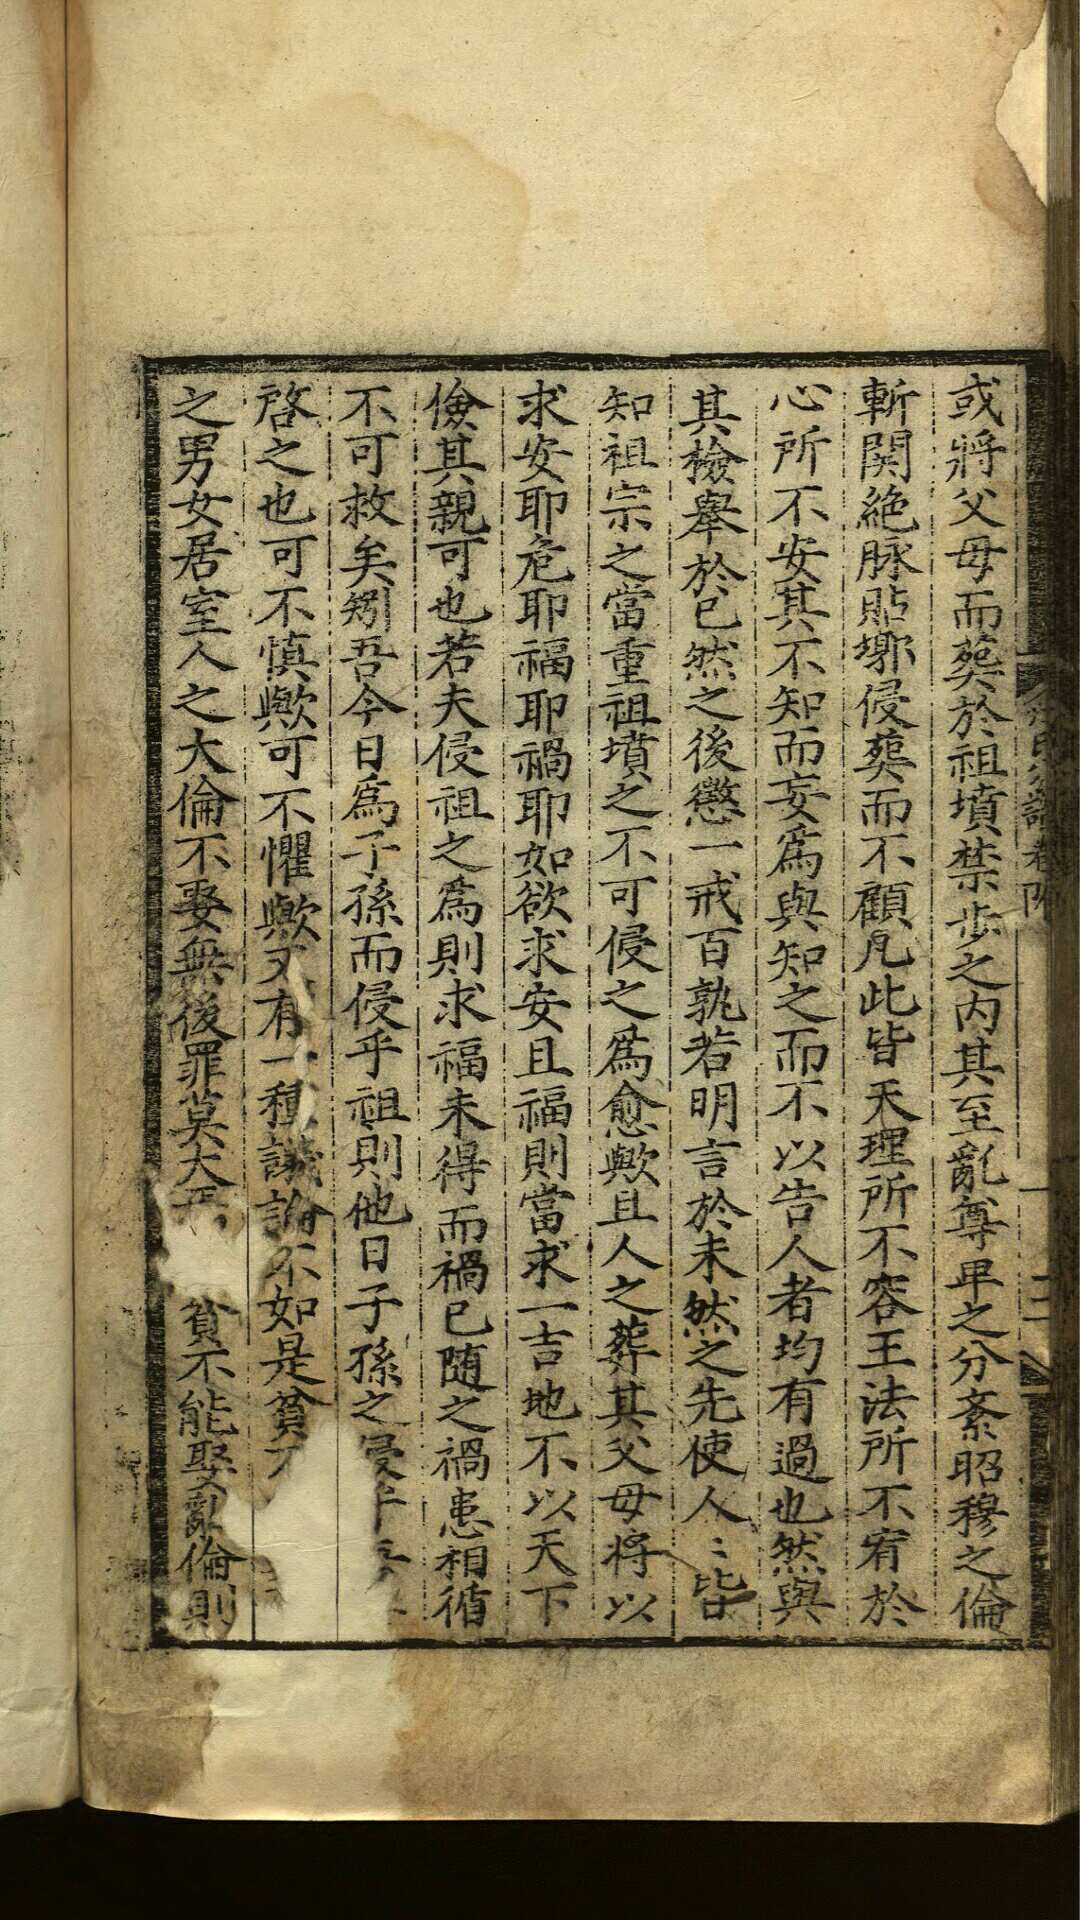 或將父母而葬於祖墳禁步之内其至亂尊卑之分紊昭穆之倫
斬関絶脉貼塚侵葬而不顧凡此皆天理所不容王法所不宥於
心所不安其不知而妄爲與知之而不以告人者均有過也然與
其檢舉於已然之後懲一戒百孰若明言於未然之先使人〻皆
知祖宗之當重祖墳之不可侵之爲愈歟且人之葬其父母将以
求安耶危耶福耶禍耶如欲求安且福則當求一吉地不以天下
儉其親可也若夫侵祖之爲則求福未得而禍已随之禍患相循
不可救矣矧吾今日爲子孫而侵乎祖則他日子孫之侵乎
啓之也可不慎歟可不懼歟又有一種議論不如是貧不
之男女居室人之大倫不娶無後罪莫大焉貧不能娶亂倫則
卷附
二